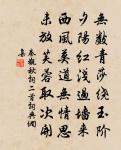 無數青莎繞玉階
夕陽紅淺過牆來
西風莫道無情思
未放芙蓉取次開
秦觀秋詞二首詞典網
集